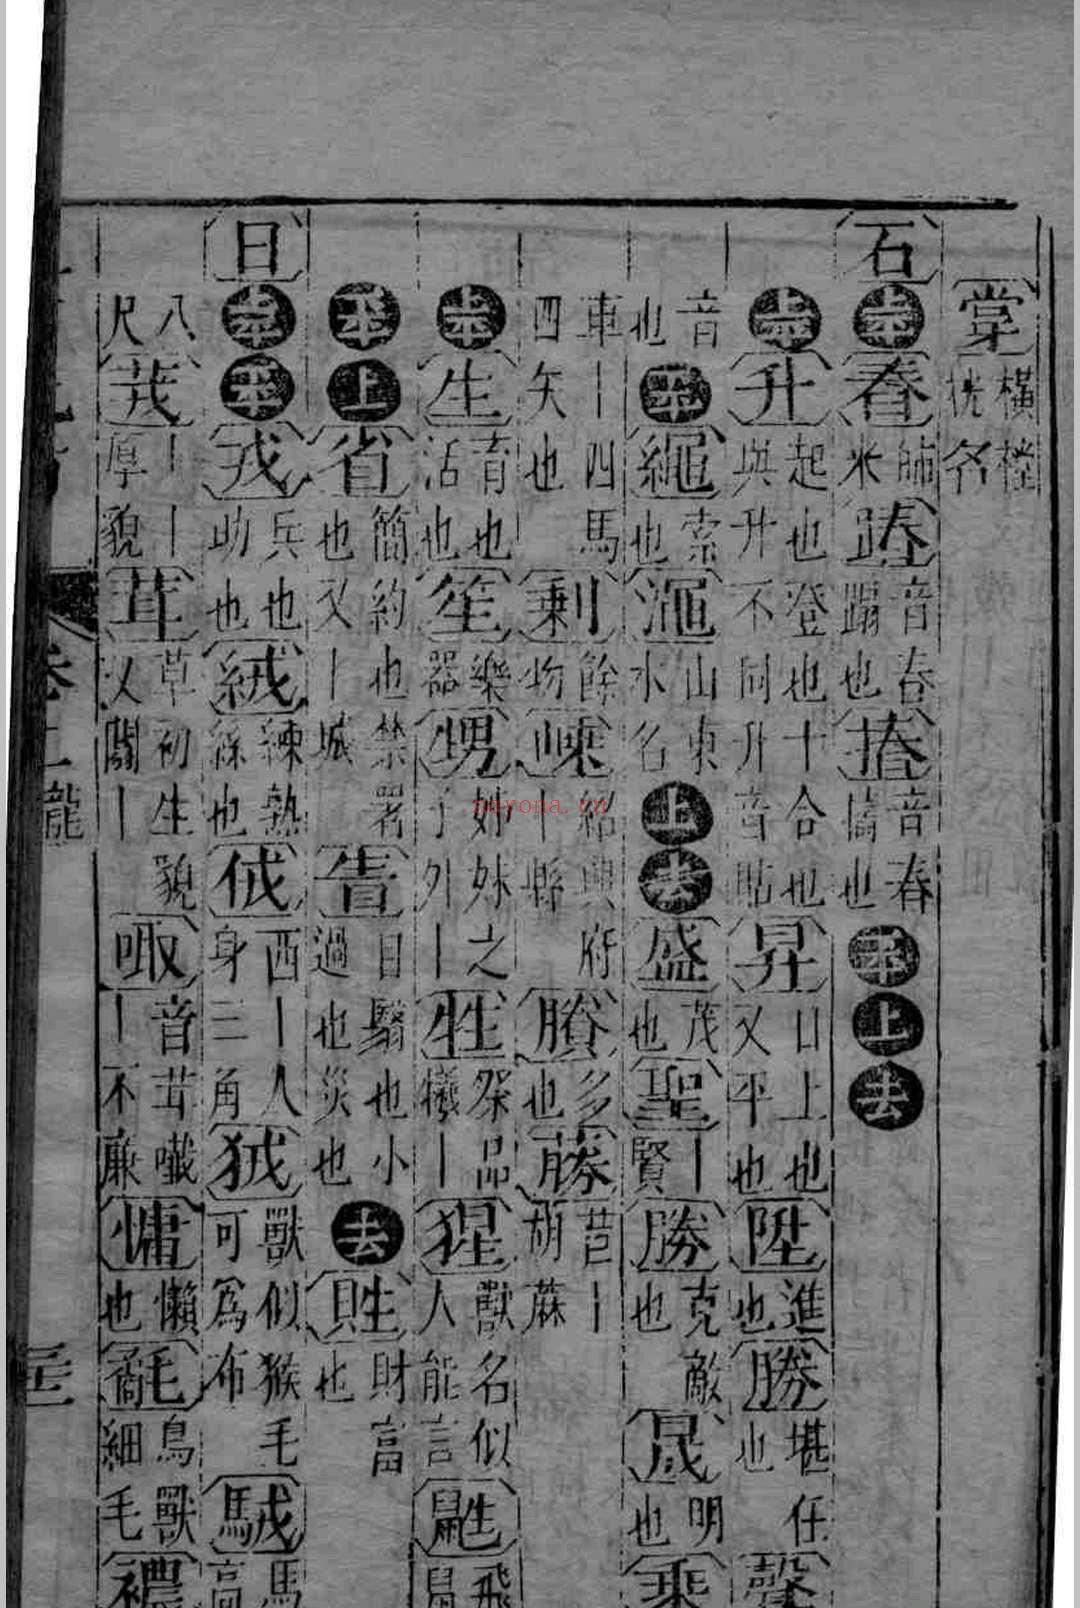 掌橫樘桄名
石 去 舂㫋米 蹖音舂蹋也 摏音舂擣也 平 上 去
去 升起也登也十合也與升不同升音貼 昇日上也又平也 陞進也 勝堪任也 聲
音也 平 繩索也 澠山東水名 上 去 盛茂也 聖丨賢 勝克敵也 晟明也 乘
車丨四馬四矢也 剩餘物 嵊紹興府丨縣 賸多也 藤苣丨胡蔴
去 生育也活也 笙樂器 甥姊妹之子外丨 牲祭品犧丨 猩獸名似人能言 鼪飛鼠
平 上 省簡約也禁署也又丨城 眚目翳也小過也災也 去 貹財富也
日 去 平 戎兵也助也 絨練熟絲也 㑙西丨人身三角 狨獸似猴毛可為布 駥馬高
八尺 茙丨丨厚貌 茸草初生貌又闒丨 㖡音茸嚱丨不廉 慵懶也 氄鳥獸細毛 襛
卷 龍